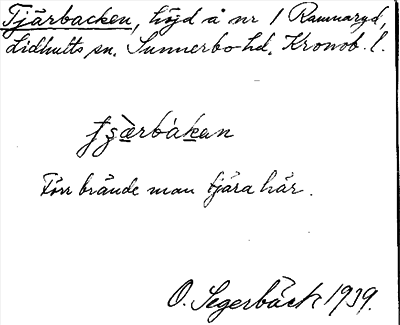 Tjärbacken, höjd å nr 1 Ramnaryd,
Lidhults sn. Sunnerbo hd. Kronob. l.
Förr brände man tjära här.
O. Segerbäck 1939.